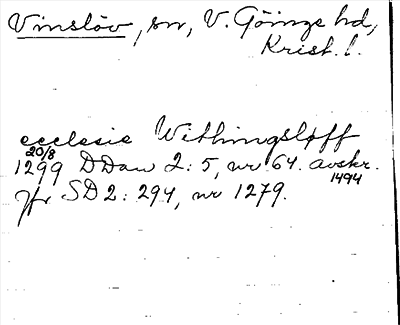 Vinslöv, sn, V. Göinge hd,
Krist. l.
ecclesie Withingsløff
20/8
1299 DDan 2: 5, nr 64. avskr.
1494
Jfr SD 2: 294, nr 1279.